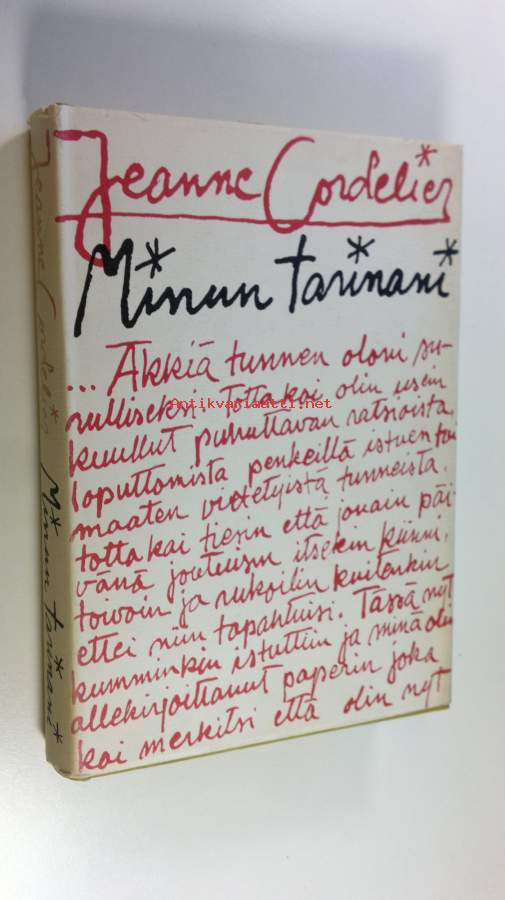 Jeanne Cordelier
Minun tarinani
... Äkkiä tunnen oloni su-
rulliseksi. Totta kai olin usein
kuullut puhuttavan ratsioista,
loputtomista penkeillä istuen tai
maaten vietetyistä tunneista.
totta kai tiesin että jonain päi-
vänä joutuisin itsekin kiinni,
toivoin ja rukoilin kuitenkin
ettei niin tapahtuisi. Tässä nyt
kumminkin istuttiin ja minä olin
allekirjoittanut paperin joka
kai merkitsi että olin nyt
Antikvariaatti.net
Jeanne Cordelier Minun tarinani